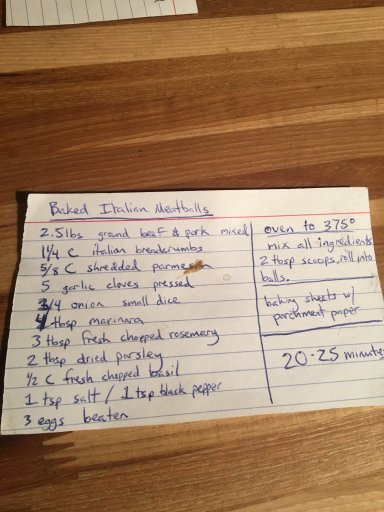 Baked Italian Meatballs
2.5lbs ground beef & pork mixed
1 1/4 C italian breadcrumbs
5/8 C shredded parmesan
5 garlic cloves pressed
3/4 onion small dice
4 tbsp marinara
3 tbsp fresh chopped rosemary
2 tbsp dried parsley
1/2 C fresh chopped basil
1 tsp salt / 1 tsp black pepper
3 eggs beaten
oven to 375°
mix all ingredients
2 tbsp scoops, roll into
balls.
baking sheets w/
parchment paper
20-25 minutes